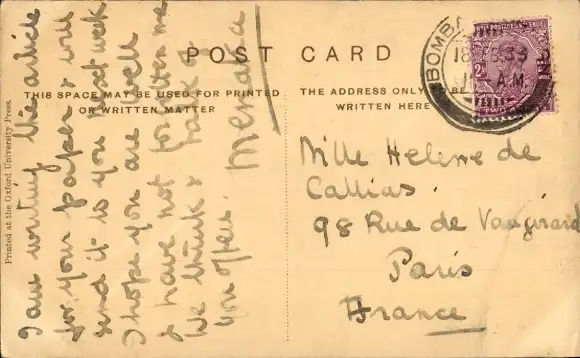 POST CARD
THIS SPACE MAY BE USED FOR PRINTED
OR WRITTEN MATTER
THE ADDRESS ONLY TO BE
WRITTEN HERE
Printed at the Oxford University Press.
I am writing the article
for your paper & will
send it to you next week
I hope you are well
& have not forgotten me
We think & talk of
you often.
Menaka
Mlle Helene de
Callias.
98 Rue de Vaugirard
Paris
France
BOMBA
18 FEB. 33
A.M.